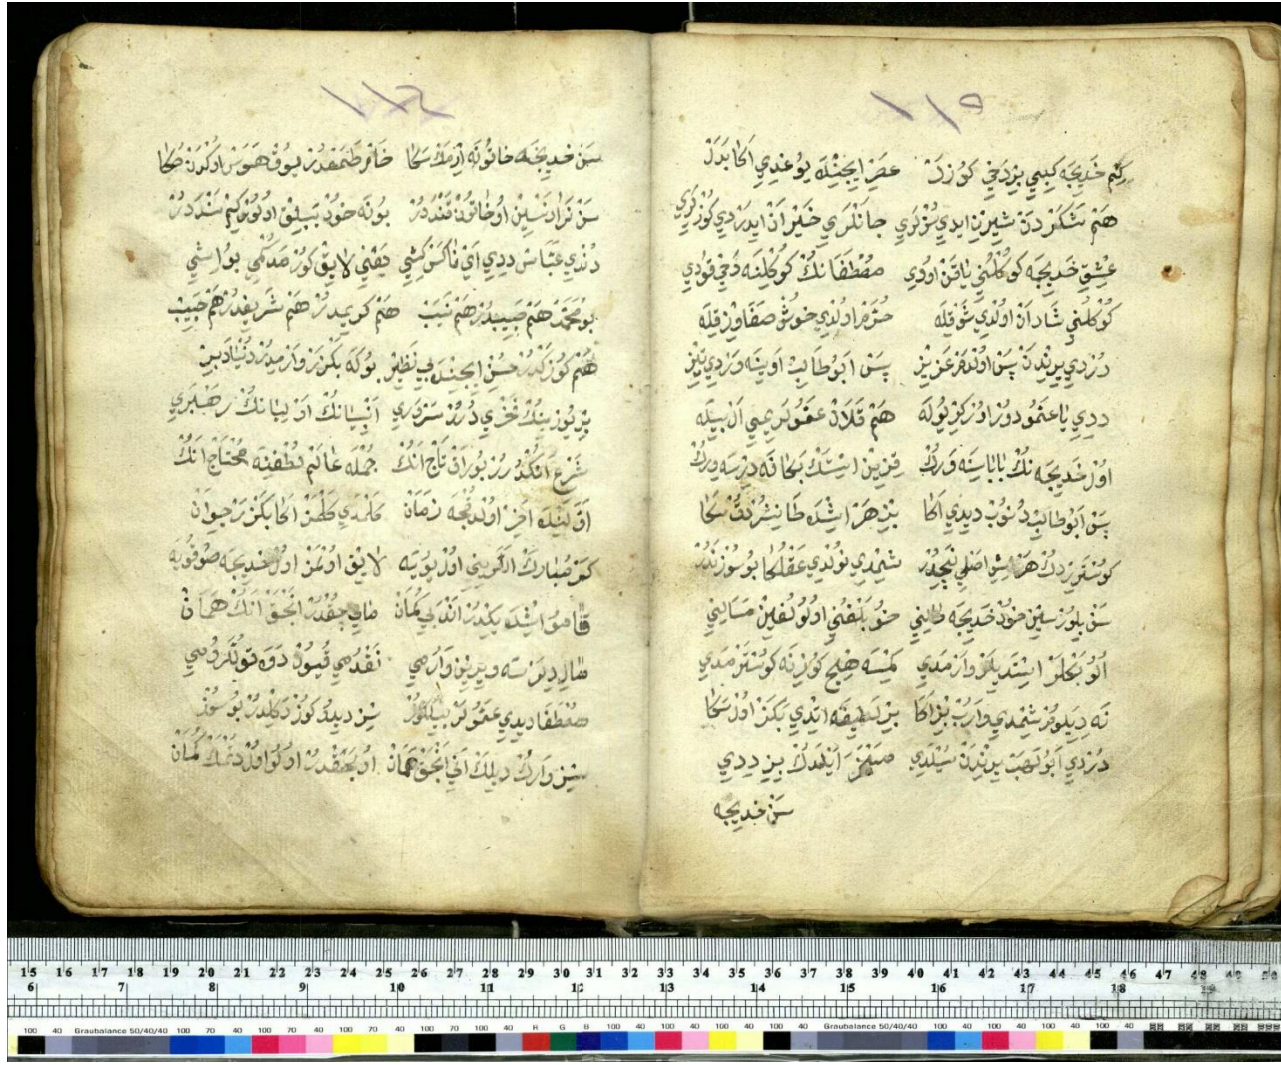 ١١٥
كم خديجه كبيي بزدخي كوزل عصر ايچنده يوغدي اكا بدل
هم شكردن شيرين ايدي سوزلري جانلري حيران ايدردي كوزلري
عشق خديجه كوكلني ياقن اودي مصطفانك كوكلنه دخي قودي
كوكلني شادان اولدي شوقله خرم اولدي خوش صفا و ذوقله
دردي يرندن پس اولدم عزيز پس ابوطالب اوينه وردي تيز
ددي يا عمو دوز اوزكز يوله هم قلان عمولريمي آل بيله
اول خديجه نك باباسنه ورك قزين استك بكا نه درسه ورك
پس ابوطالب دنوب ديدي اكا بز هر اشده طانشردق سكا
كوستررديك هر ايشى اصلي نيجه در شمدي نولدي عقلكا بو سوز ندر
سن بلورسين خود خديجه حاليني خود بلنني اولولغين ماليني
الو بكلر استديلر وارمدي كمسه هيچ كوزينه كوسترمدي
نه ديلومز شمدي واروب بز اكا بز لطيفه ايتدي بكزر اول سكا
دردي ابولهب يرندن سيلدي مسخر ايلدك بزي ددي
سن خديجه
١١٤
سن خديجه خاتونه ارمك سكا خام طمعدر يوق هوس اوكدن صكا
سن نرادنسين او خاتون قنده در بونه خود بكلق اولوركيم سنده در
دندي عباس ددي اي ناكس كشي يعني لايق كورمدكمي بو ايشي
بو محمد هم حبيبدر هم نسيب هم كريمدر هم شريفدر هم حبيب
هم كوزلدر حسن ايچنده بي نظير بوكه بكزر وارميدر دنياده بر
يريوزينك فخري در سروري انبيانك اوليانك رهبري
شرع انكدر بوراق تاج انك جمله عالم لطفنه محتاج انك
اولنده آخر اولدنجه زمان كلمدي كلمز اكا بكزر جوان
كر مبارك الكريني اول يويه لايق اولمز اول خديجه صو قويه
قامو اشده يكدر اندن بي كمان مالي جقدر انجق انك همان
مال ديرسه ويرين وارمي نقدمي قيون دوه قوللرمي
مصطفا ديدي عمولر بيلكوز سزن ديدوكوز دكلدر بو سوز
سز وارك ديلك آني انجق همان او بحقدر اولو اول دمك كمان